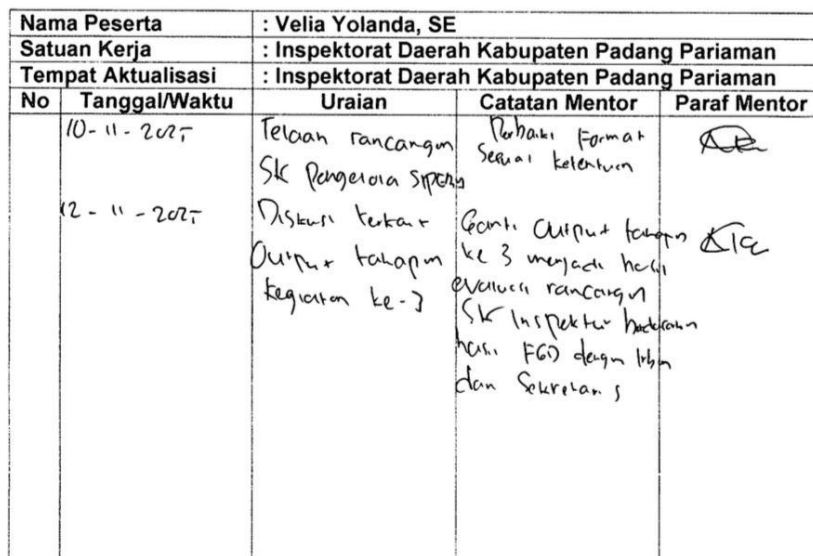 Nama Peserta : Velia Yolanda, SE
Satuan Kerja : Inspektorat Daerah Kabupaten Padang Pariaman
Tempat Aktualisasi : Inspektorat Daerah Kabupaten Padang Pariaman
No Tanggal/Waktu Uraian Catatan Mentor Paraf Mentor
10-11-2025 Telaan rancangan Perbaiki Format
SK Pengelola sesuai ketentuan
12-11-2025 Diskusi terkait Ganti Output tahapan
Output tahapan ke 3 menjadi hasil
kegiatan ke-3 evaluasi rancangan
SK Inspektur berdasarkan
hasil FGD dengan Irban
dan Sekretaris